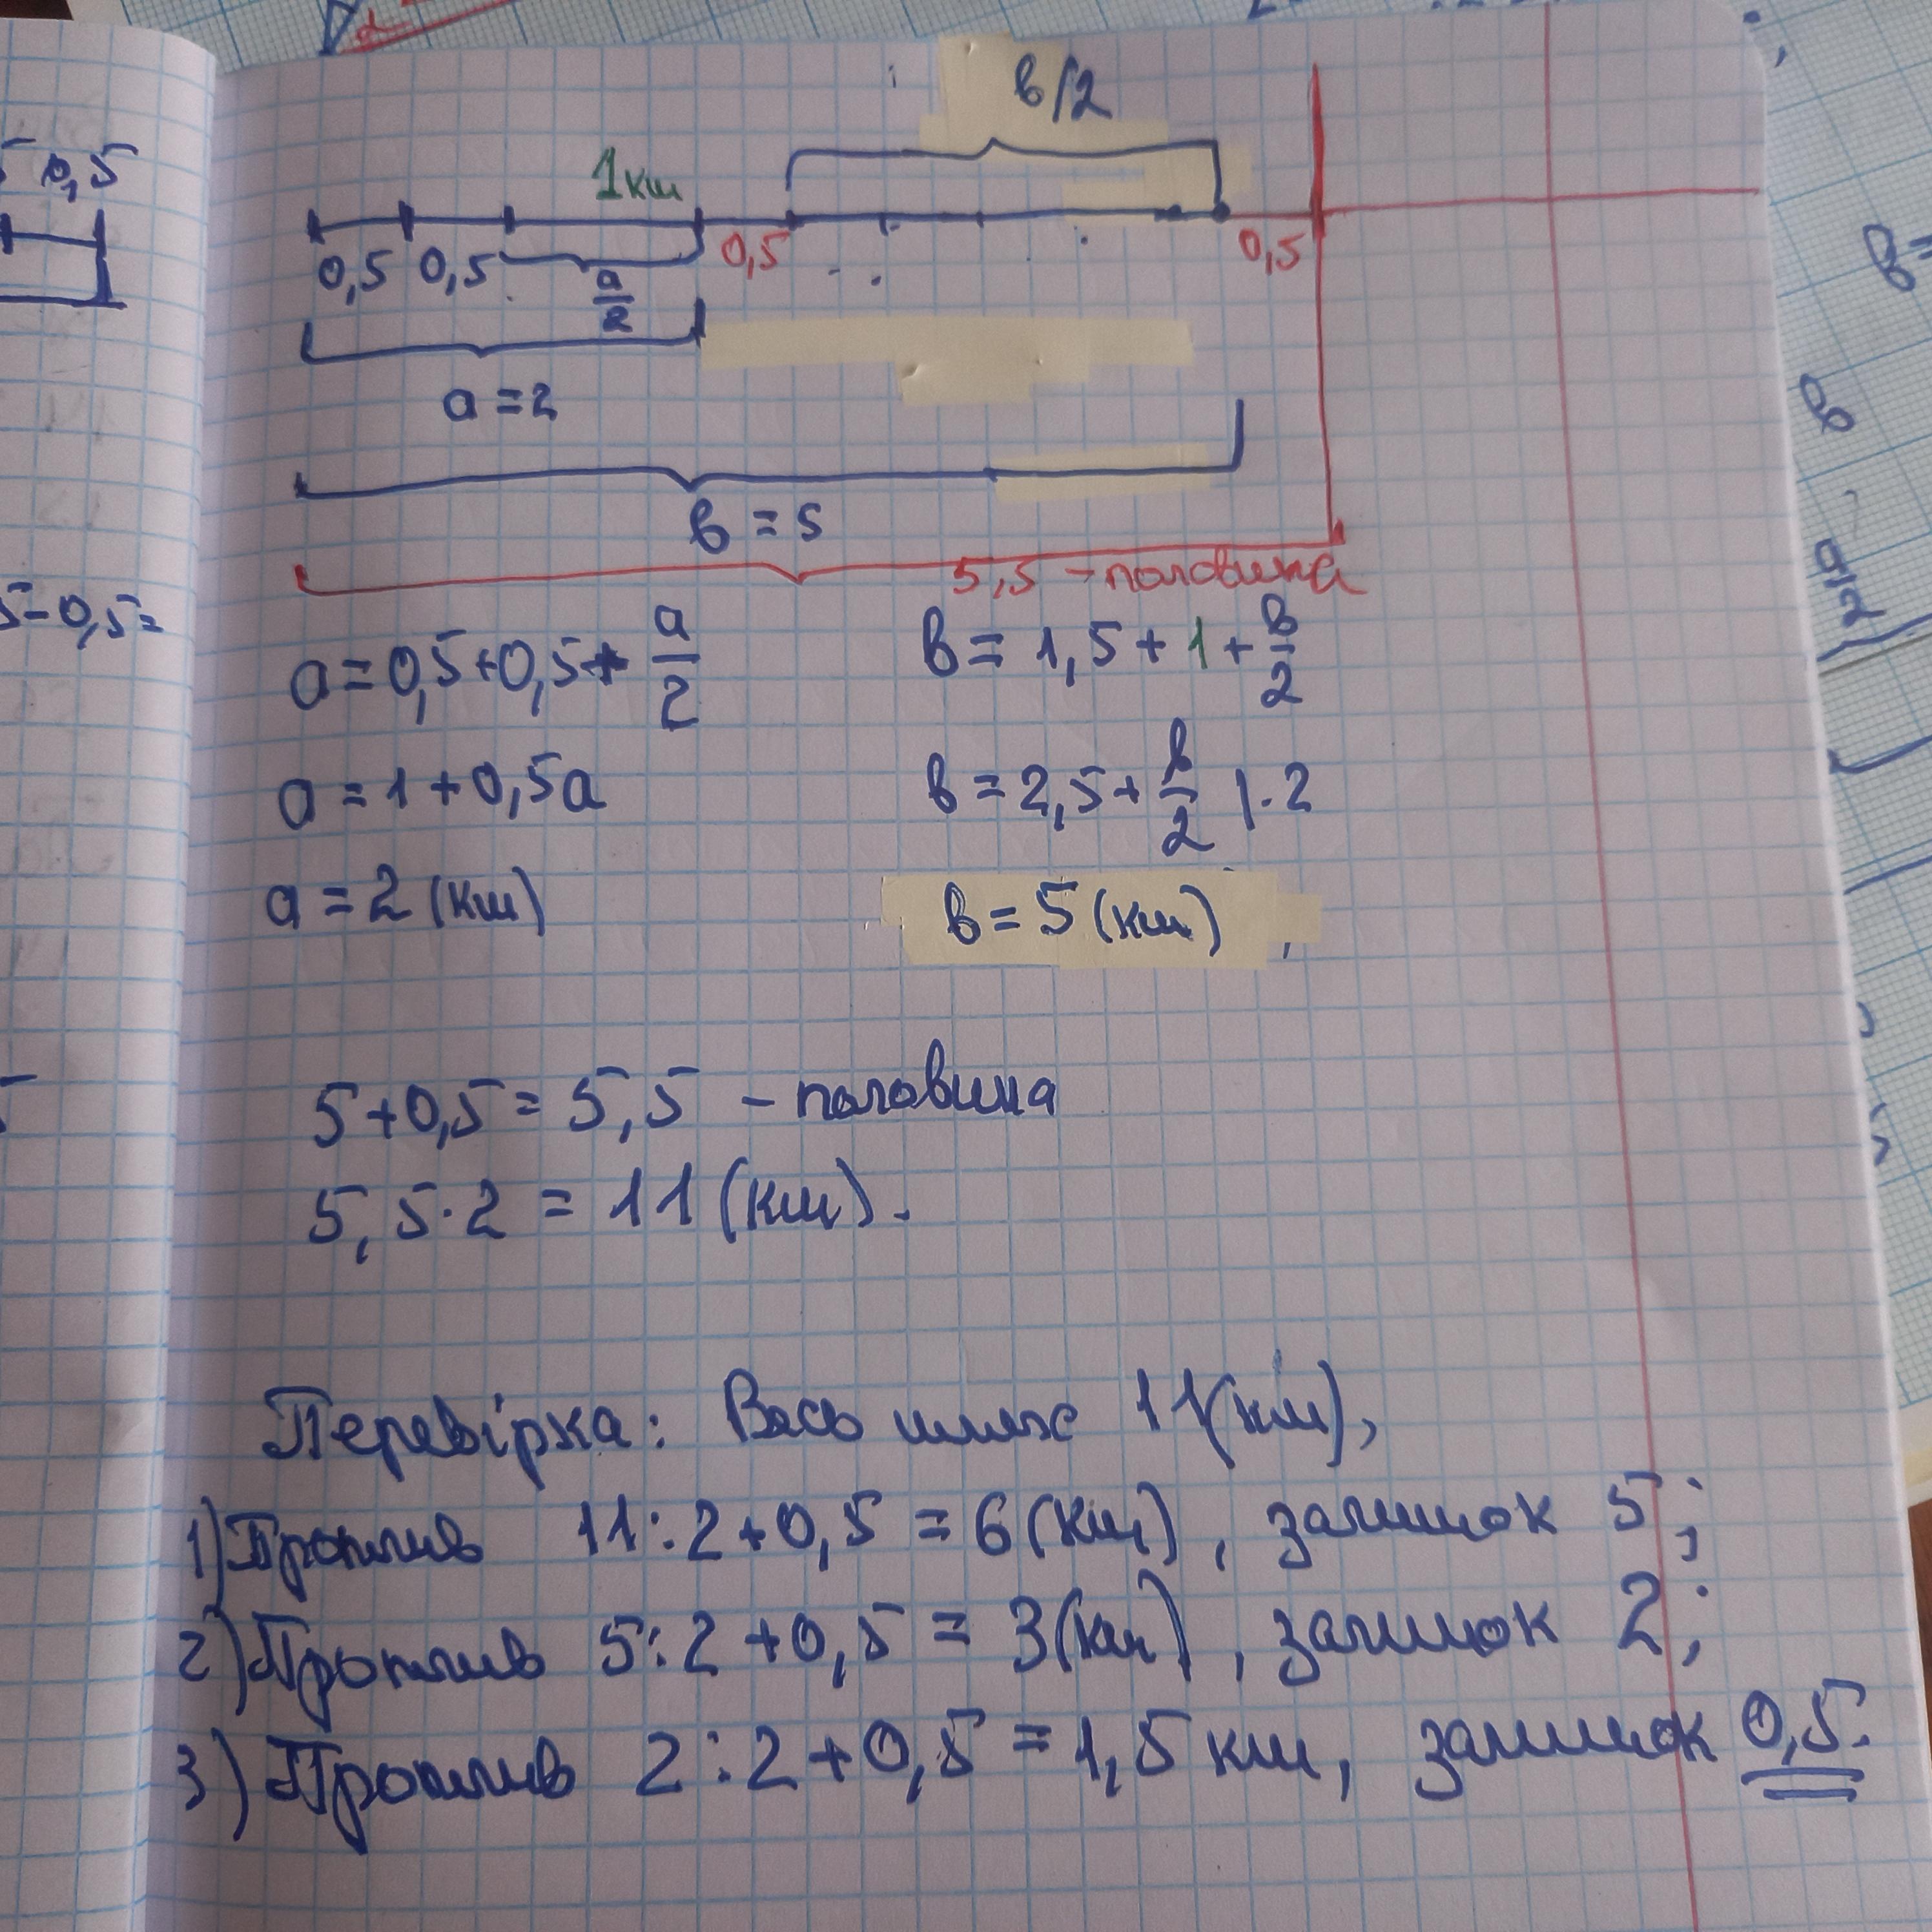 в/2
5 0,5
1км
0,5 0,5 0,5 0,5
а/2
а = 2
в = 5
5,5 - половина
5-0,5=
а = 0,5+0,5+ а/2 в = 1,5 + 1 + в/2
а = 1 + 0,5а в = 2,5 + в/2 |·2
а = 2 (км) в = 5 (км)
5 + 0,5 = 5,5 - половина
5,5·2 = 11 (км).
Перевірка: Весь шлях 11 (км),
1) Проплив 11:2+0,5 = 6 (км), залишок 5;
2) Проплив 5:2+0,5 = 3 (км), залишок 2;
3) Проплив 2:2+0,5 = 1,5 км, залишок 0,5.